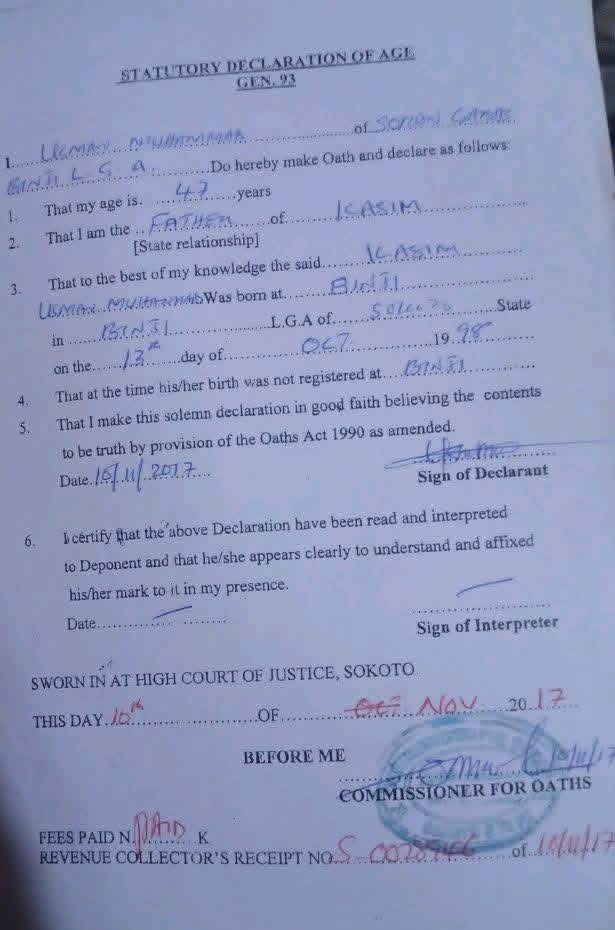 STATUTORY DECLARATION OF AGE
GEN. 93
I......USMAN MUHAMMAD..................of SORON GAWA
BINJI L G A..........Do hereby make Oath and declare as follows:
1. That my age is......47......years
2. That I am the ..FATHER......of........KASIM..............
[State relationship]
3. That to the best of my knowledge the said........KASIM............
USMAN MUHAMMAD Was born at........BINJI..............
in......BINJI..............L.G.A of......SOKOTO........State
on the......13th......day of........OCT............19.98........
4. That at the time his/her birth was not registered at....BINJI........
5. That I make this solemn declaration in good faith believing the contents
to be truth by provision of the Oaths Act 1990 as amended.
Date.10/11/2017...
Sign of Declarant
6. I certify that the above Declaration have been read and interpreted
to Deponent and that he/she appears clearly to understand and affixed
his/her mark to it in my presence.
Date......................
Sign of Interpreter
SWORN IN AT HIGH COURT OF JUSTICE, SOKOTO
THIS DAY.10th....................OF..........OCT NOV......20.17...
BEFORE ME
10/11/17
COMMISSIONER FOR OATHS
FEES PAID N.PAID......K
REVENUE COLLECTOR'S RECEIPT NO.......of..10/11/17